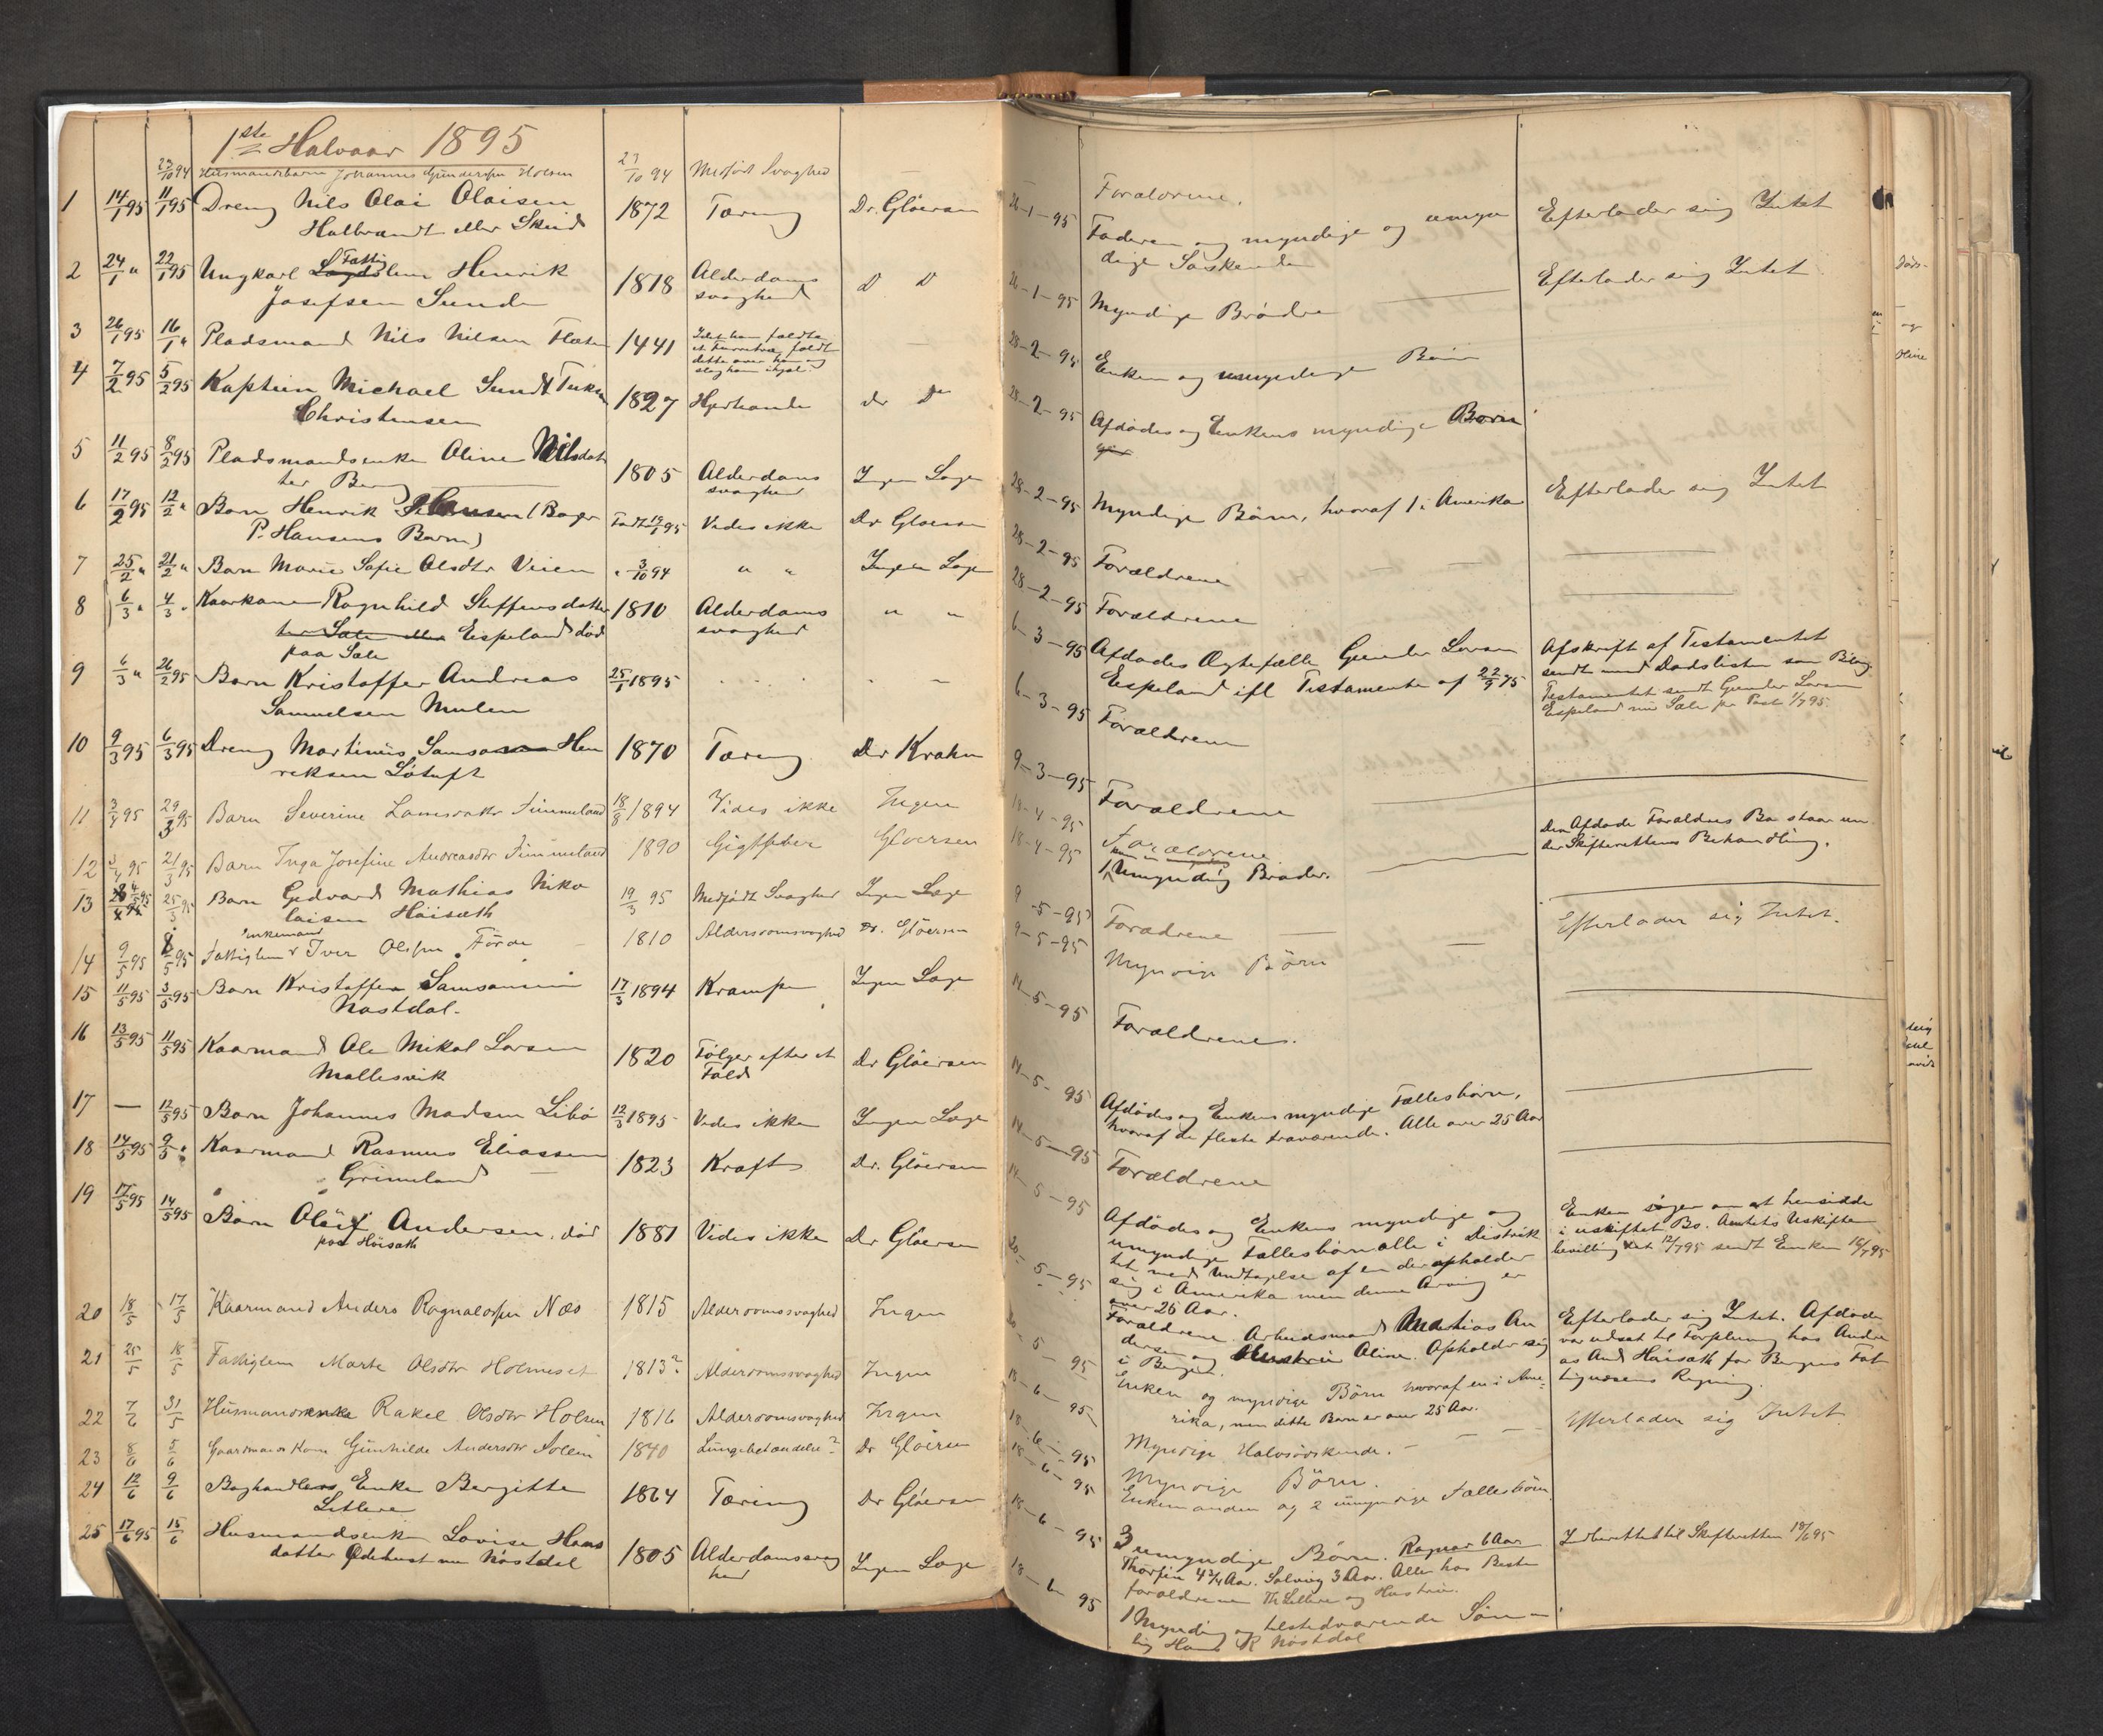 1ste Halvaar 1895
23/10 94 Husmandsbarn Johannes Gundersen Holsen 23/10 94 Medfødt Svaghed
1 14/1 95 11/1 95 Dreng Nils Olai Olaisen 1872 Tæring Dr. Gløersen
Halbrandt eller Skeid
2 24/1 " 22/1 95 Ungkarl Fattig lem Henrik 1818 Alderdoms D D
Josefsen Sunde svaghed
3 26/1 95 16/1 " Pladsmand Nils Nilsen 1441 Idet han fældte
et Furutræ, faldt
dette over ham og
slog ham ihjel.
4 7/2 95 5/2 95 Kaptein Michael Sundt Tuxen 1827 Hjerteonde
Christensen
5 11/2 95 8/2 95 Pladsmandsenke Oline Nilsdat 1805 Alderdoms Ingen Læge
ter Berg svaghed
6 17/2 95 12/2 " Barn Henrik Hansen (Bager Født 19/1 95 Vides ikke Dr Gløersen
P. Hansens Barn)
7 25/2 " 21/2 " Barn Marie Sofie Olsdtr Veien " 3/10 94 " " Ingen Læge
8 6/3 " 4/3 " Kaarkone Ragnhild Steffensdatter 1810 Alderdoms " "
ter Sæle eller Espeland død svaghed
paa Sæle
9 6/3 " 26/2 95 Barn Kristoffer Andreas 25/1 1895
Samuelsen Mulen
10 9/3 95 6/3 95 Dreng Martinus Hen 1870 Tæring Dr Krohn
reksen Løtuft
11 3/4 95 29/3 95 Barn Severine Timmeland 18/8 1894 Vides ikke Ingen
12 3/4 95 21/3 95 Barn Inga Josefine Andreasdtr Timmeland 1890 Gigtfeber Gløersen
13 25/3 95 Barn Gedvard Mathias Niko 19/3 95 Medfødt Svaghed Ingen Læge
laisen Høisæth
Enkemand
14 9/5 95 8/5 95 Fattiglem Iver Olsen Førde 1810 Alderdomssvaghed Dr. Gløersen
15 11/5 95 3/5 95 Barn Kristoffer Samsonsen 17/3 1894 Krampe Ingen Læge
Nøstdal.
16 13/5 95 11/5 95 Kaarmand Ole Mikal Larsen 1820 Følger efter et Dr Gløersen
Mallesvik Fald
17 — 12/5 95 Barn Johannes Madsen Libø 12/3 1895 Vides ikke Ingen Læge
18 14/5 95 9/5 " Kaarmand Rasmus Eliassen 1823 Kræft Dr. Gløersen
Grimeland
19 17/5 95 14/5 95 Barn Oluf Andersen, død 1881 Vides ikke Dr Gløersen
paa Høisæth
20 18/5 17/5 Kaarmand Anders Ragnaldsen Næs 1815 Alderdomssvaghed Ingen
21 25/5 18/5 Fattiglem Marte Olsdtr Holmeset 1813? Alderdomssvaghed Ingen
22 7/6 31/5 Husmandsenke Rakel Olsdtr Holsen 1816 Alderdomssvaghed Ingen
23 8/6 5/6 Gaardmandskone Gunhilde Andersdtr Solem 1840 Lungebetændelse? Dr Gløersen
24 12/6 9/6 Boghandlers Enke Bergitte 1864 Tæring Dr Gløersen
Litlere
25 17/6 95 15/6 Husmandsenke Lovise Hans 1805 Alderdomssvag Ingen Læge
datter Ødehust nu Nøstdal hed
Forældrene.
26-1-95 Faderen og myndige og umyn Efterlader sig Intet
dige Søskende
26-1-95 Myndige Brødre Efterlader sig Intet
28-2-95 Enken og umyndige Børn
28-2-95 Afdødes og Enkens myndige Børn
28-2-95 Myndige Børn, hvoraf 1 i Amerika Efterlader sig Intet
28-2-95 Forældrene
28-2-95 Forældrene
6-3-95 Afdødes Ægtefælle Gunder Larsen Afskrift af Testamentet
Espeland ifl Testamente af 22/9 75 sendt med Dødslisten som Bilag.
Testamentet sendt Gunder Larsen
Espeland nu Sæle pr Post 1/7 95
6-3-95 Forældrene
9-3-95 Forældrene
18-4-95 Forældrene
Den Afdøde Forældres Bo staar un
der Skifterettens Behandling.
18-4-95 1 Umyndig Broder.
9-5-95 Forædrene Efterlader sig Intet.
9-5-95 Myndige Børn
14-5-95 Forældrene.
14-5-95 Afdødes og Enkens myndige Fællesbørn,
hvoraf de fleste fraværende. Alle over 25 Aar
14-5-95 Forældrene
14-5-95 Afdødes og Enkens myndige og Enken søger om at hensidde
umyndige Fællesbørn alle i Distrik i uskiftet Bo. Amtets Uskifte
tet med Undtagelse af en der opholder bevilling dat 12/7 95 sendt Enken 16/7 95
sig i Amerika men denne Arving er
over 25 Aar.
20-5-95 Forældrene Arbeidsmand Mathias An Efterlader sig Intet. Afdøde
dersen og Hustru Oline. Opholder sig var udsat til Forpleining hos Andre
i Bergen. as And Høisæth for Bergens Fat
tigvæsens Regning.
20-5-95 Enken og myndige Børn hvoraf en i Ame-
rika, men dette Barn er over 25 Aar.
18-6-95 Myndige Halvsødskende. Efterlader sig Intet.
18-6-95 Myndige Børn.
18-6-95 Enkemanden og 2 umyndige Fællesbørn
18-6-95 3 umyndige Børn. Ragnar 6 Aar Indberettet til Skifteretten 18/6 95
Thorfin 4 3/4 Aar. Solveig 3 Aar. Alle hos Beste
forældrene Th Litlere og Hustru.
18-6-95 1 Myndig og tilstedværende Søn
lig Hans R Nøstdal